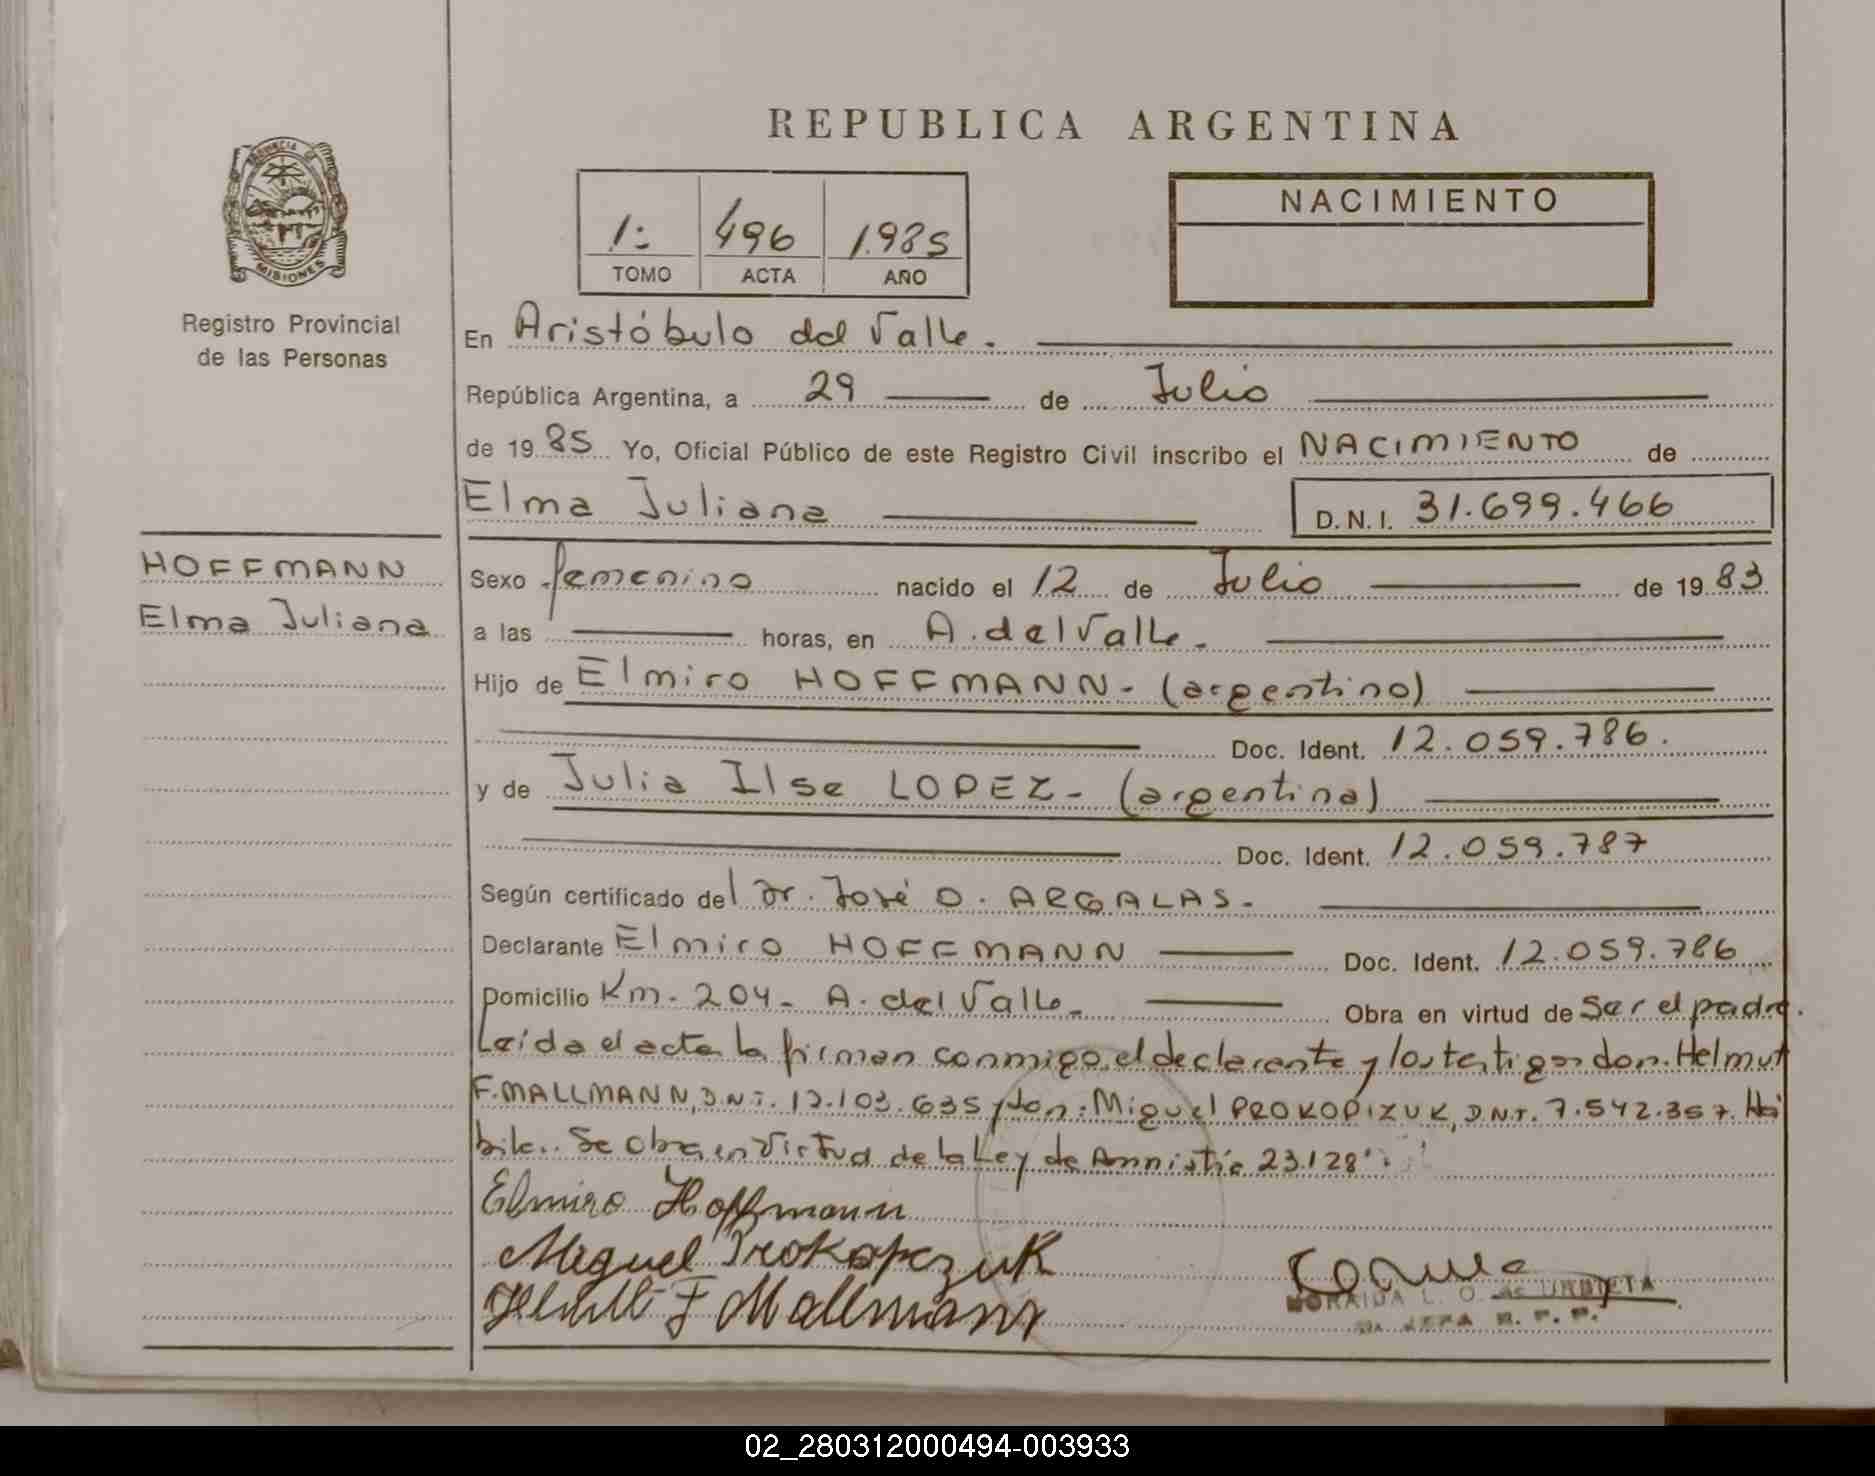 REPUBLICA ARGENTINA
PROVINCIA DE
MISIONES
Registro Provincial
de las Personas
1:
496
1.985
TOMO
ACTA
AÑO
NACIMIENTO
En Aristóbulo del Valle.
República Argentina, a 29 de Julio
de 1985 Yo, Oficial Público de este Registro Civil inscribo el NACIMIENTO de
Elma Juliana D.N.I. 31.699.466
HOFFMANN
Elma Juliana
Sexo femenino nacido el 12 de Julio de 1983
a las horas, en A. del Valle.
Hijo de Elmiro HOFFMANN- (argentino)
Doc. Ident. 12.059.786.
y de Julia Ilse LOPEZ- (argentina)
Doc. Ident. 12.059.787
Según certificado del Dr. José O. ARGALAS.
Declarante Elmiro HOFFMANN Doc. Ident. 12.059.786
Domicilio Km. 204- A. del Valle Obra en virtud de Ser el padre.
Leída el acta la firman conmigo el declarante y los testigos don. Helmut
F. MALLMANN, D.N.I. 12.103.635 y don: Miguel PROKOPIZUK, D.N.I. 7.542.357. Há
bile.. Se obra en virtud de la Ley de Amnistía 23.128
Elmiro Hoffmann
Miguel Prokopczuk
F Mallmann
L. O. de URBIETA
JEFA R. P. P.
02_280312000494-003933